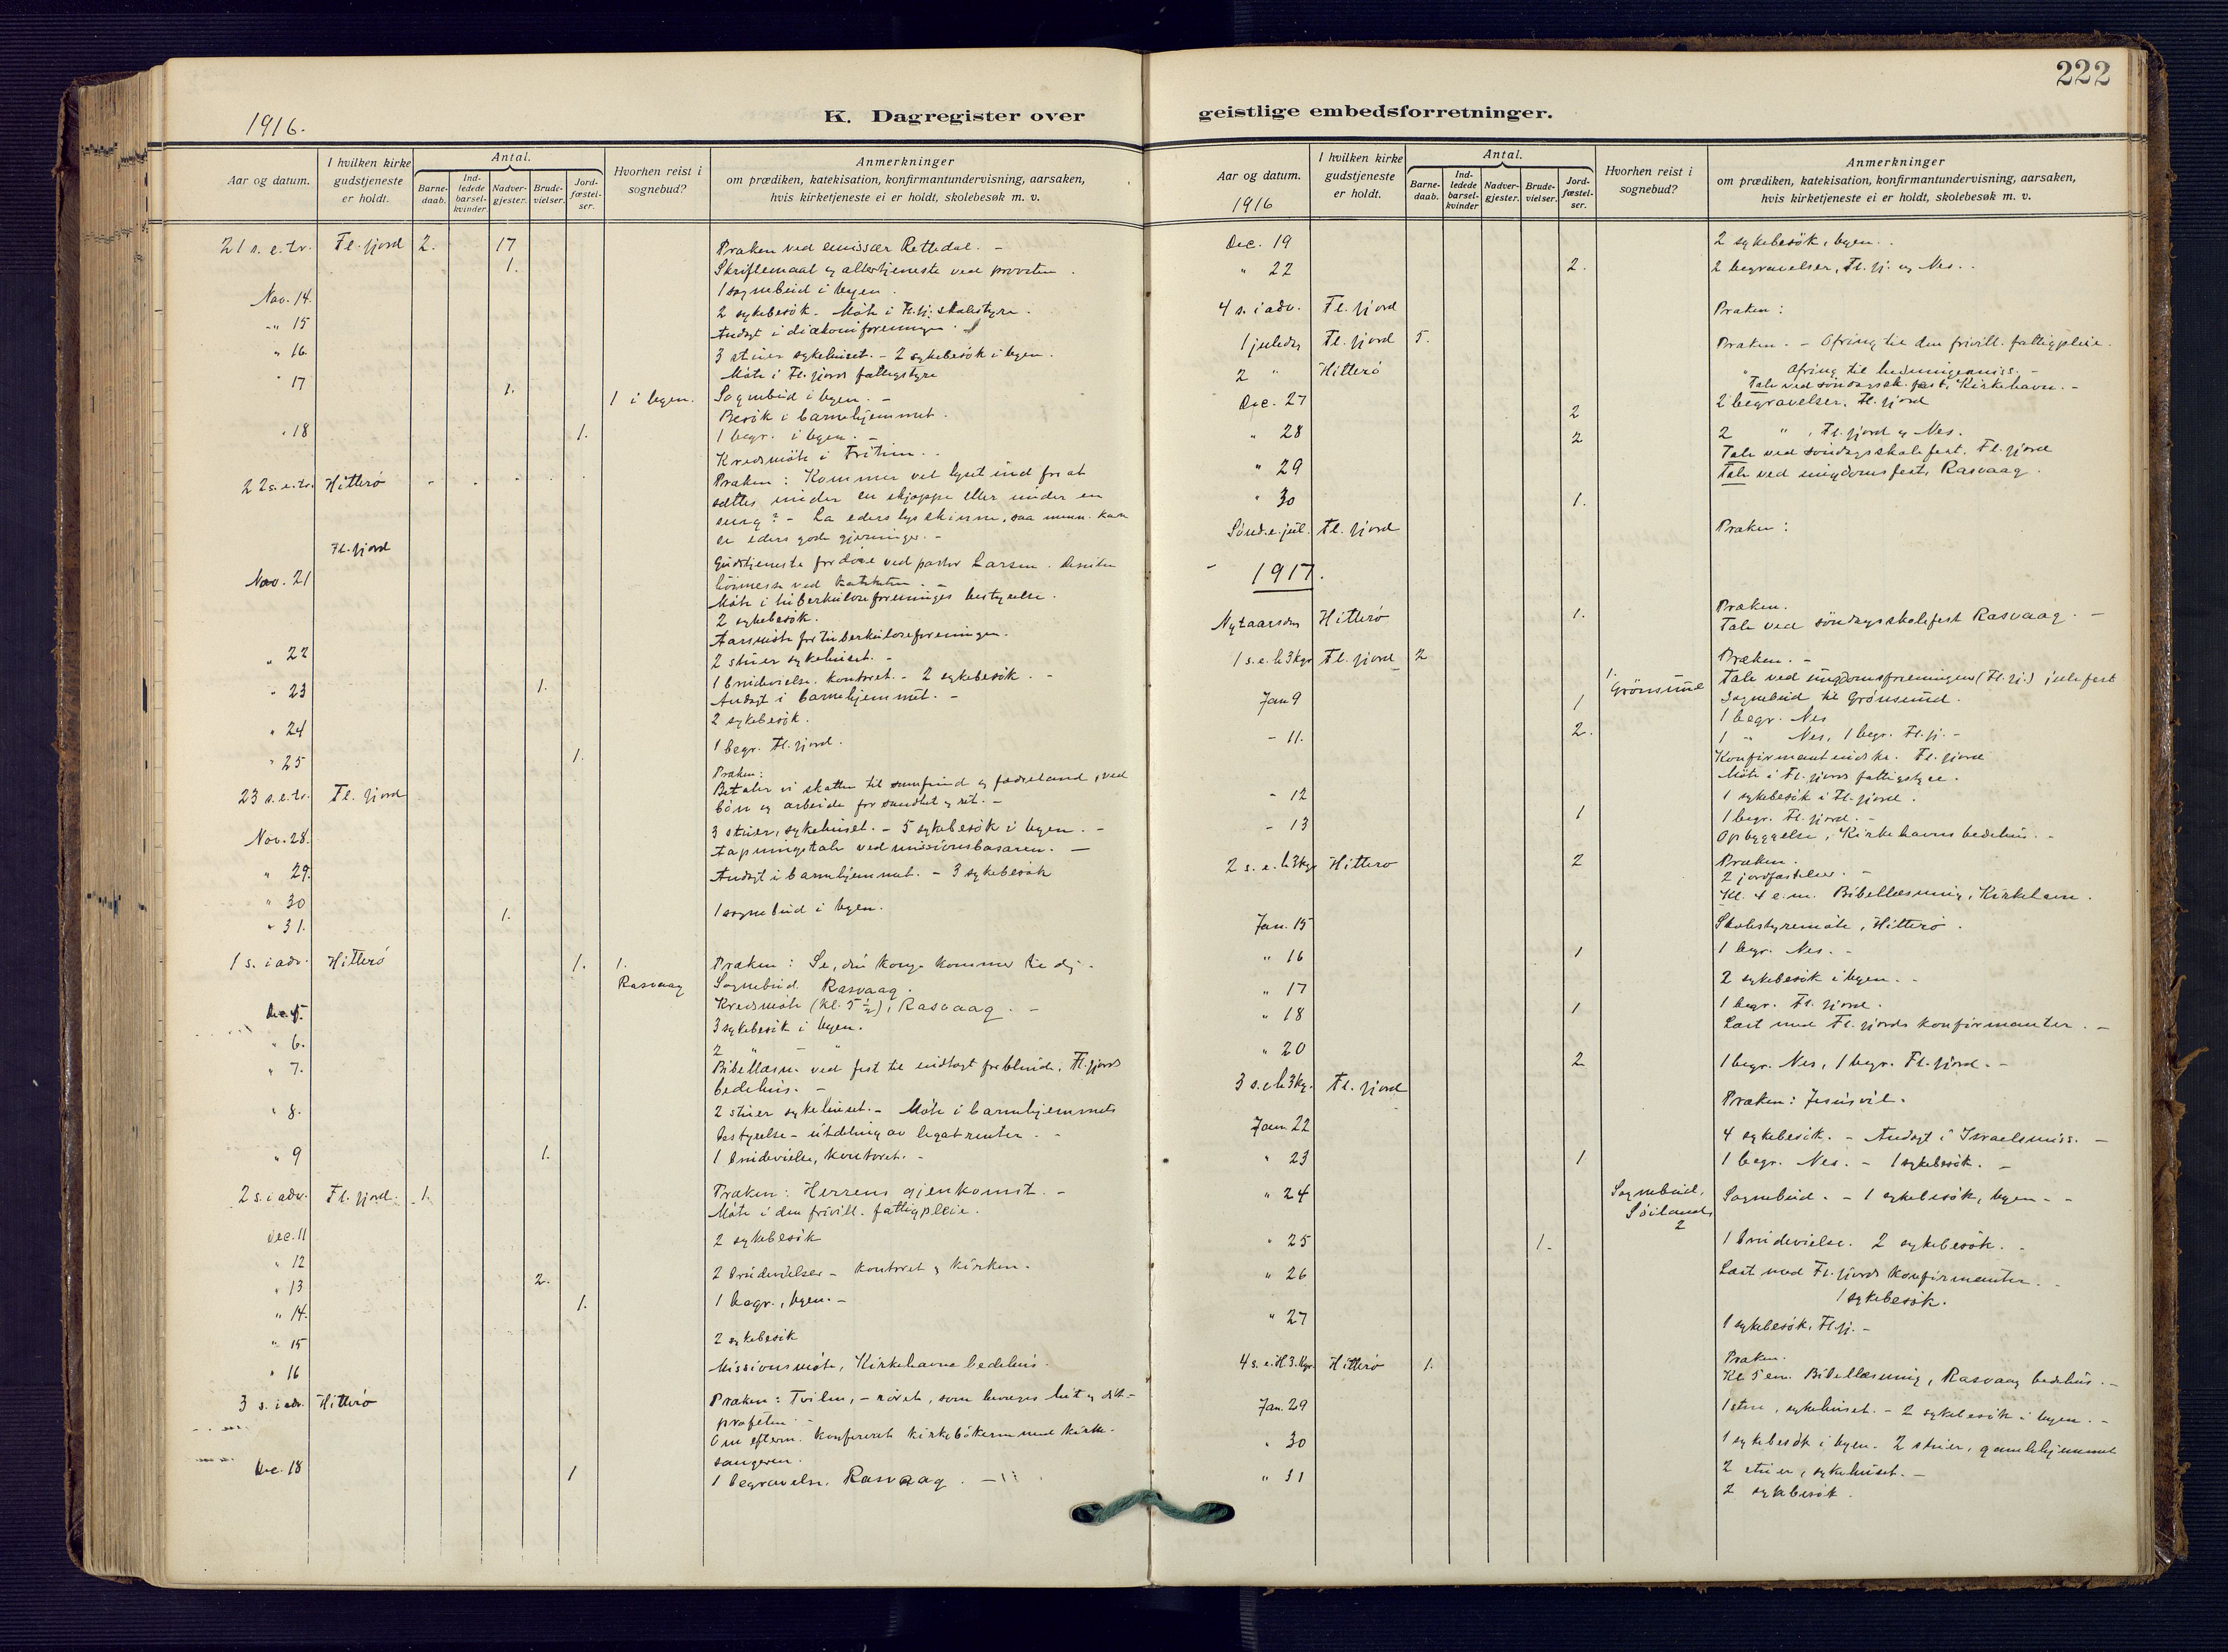 222
1916.
K. Dagregister over geistlige embedsforretninger.
Aar og datum.
I hvilken kirke gudstjeneste er holdt.
Antal.
Barne-daab.
Ind-ledede barsel-kvinder.
Nadver-gjester.
Brude-vielser.
Jord-fæstel-ser.
Hvorhen reist i sognebud?
Anmerkninger
om prædiken, katekisation, konfirmantundervisning, aarsaken,
hvis kirketjeneste ei er holdt, skolebesøk m. v.
21 s.e.tr. Fl.fjord 2. 17 Præken ved emissær Rettedal. -
1. Skriftemaal og altertjeneste ved provsten.
1 sognebud i byen.
Nov. 14. 2 sykebesök. Möte i Fl.fj. skolestyre.
-"- 15 Andagt i diakoniforeningen.
" 16 3 stuer sykehuset. - 2 sykebesök i byen.
Möte i Fl.fjords fattigstyre
" 17 1. 1 i byen. Sognebud i byen. -
Besök i barnehjemmet.
" 18 1. 1 begr. i byen. -
Kredsmöte i
22 s.e.tr. Hitterö Præken: Kommer vel lyset ind for at
sættes under en skjæppe eller under en
seng? - La eders lys skinne, saa menn. kan
se eders gode gjerninger. -
Fl.fjord Gudstjeneste for döve ved pastor Larsen.
höimesse ved kateketen. -
Nov. 21 Möte i tuberkuloseforeninges bestyrelse.
2 sykebesök.
Aarsmöte for tuberkuloseforeningen.
" 22 2 stuer sykehuset. -
" 23 1. 1 brudevielse. kontoret. - 2 sykebesök. -
Andagt i barnehjemmet. -
" 24 2 sykebesök.
" 25 1. 1 begr. Fl.fjord.
23 s.e.tr. Fl. fjord Præken:
Betaler vi skatten til samfund og fædreland, ved
bön og arbeide for sandhet og ret. -
Nov. 28. 3 stuer, sykehuset. - 5 sykebesök i byen. -
Aapningstale ved missionsbasaren. -
" 29. Andagt i barnehjemmet. - 3 sykebesök
" 30
" 31. 1. 1 sognebud i byen.
1 s. i adv. Hitterö 1. 1. Præken: Se, din konge kommer til dig.
Rasvaag Sognebud. Rasvaag.
Kredsmöte (kl. 5 1/2), Rasvaag. -
Dec. 5. 3 sykebesök i byen.
" 6. 2 " - "
" 7. Bibellæsn. ved fest til indtægt for blinde, Fl.fjords
bedehus. -
" 8. 2 stuer sykehuset. - Möte i barnehjemmets
bestyrelse - utdeling av legatrenter. -
" 9 1. 1 brudevielse, kontoret. -
2 s. i adv. Fl. fjord. 1. Præken: Herrens gjenkomst. -
Möte i den frivill. fattigpleie.
Dec. 11 2 sykebesök
" 12
" 13 2. 2 brudevielser - kontoret og kirken.
" 14. 1. 1 begr., byen. -
" 15 2 sykebesök
" 16 Missionsmöte, Kirkehavns bedehus.
3 s. i adv. Hitterö Præken: Tvilen, - röret, som bevæges hit og dit -
profeten. -
Om efterm. konfereret kirkebökerne med kirke-
sangeren.
Dec. 18 1 1 begravelse, Rasvaag. -
Aar og datum.
1916
I hvilken kirke gudstjeneste er holdt.
Antal.
Barne-daab.
Ind-ledede barsel-kvinder
Nadver-gjester.
Brude-vielser.
Jord-fæstel-ser.
Hvorhen reist i sognebud?
Anmerkninger
om prædiken, katekisation, konfirmantundervisning, aarsaken,
hvis kirketjeneste ei er holdt, skolebesøk m. v.
Dec. 19 2 sykebesök, byen.
" 22 2. 2 begravelser, Fl. fj. og Nes.
4 s. i adv. Fl. fjord Præken:
1 juledag Fl. fjord 5. Præken. - Ofring til den frivill. fattigpleie.
2 " Hitterö " Ofring til hedningemiss. -
Tale ved söndagssk. fest, Kirkehavn. -
Dec. 27 2 2 begravelser, Fl. fjord
" 28 2 2 " , Fl. fjord og Nes.
Tale ved söndagsskolefest, Fl.fjord
" 29 Tale ved ungdomsfest, Rasvaag.
" 30 1.
Sönd. e. jul. Fl. fjord Præken:
1917.
Nytaarsdag Hitterö 1. Præken.
Tale ved söndagsskolefest Rasvaag. -
1 s. e. h3kgr Fl. fjord 2 Præken. -
1. Tale ved ungdomsforeningens (Fl. fj.) julefest
Jan 9 1 Grönsund Sognebud til Grönsund.
1 begr. Nes
- 11. 2. 1 " Nes, 1 begr. Fl. fj. -
Konfirmantundsk. Fl. fjord
Möte i Fl. fjords fattigstyre.
- 12 1 sykebesök i Fl. fjord.
- 13 1 1 begr. Fl. fjord. -
Opbyggelse, Kirkehavns bedehus. -
2 s. e. h3kgr Hitterö 2 Præken.
2 jordfæstelser. -
Kl. 4 e. m. Bibellæsning, Kirkehavn.
Jan. 15 Skolestyremöte, Hitterö.
" 16 1 1 begr. Nes. -
" 17 2 sykebesök i byen. -
" 18 1 1 begr. Fl. fjord.
Læst med Fl. fjords konfirmanter. -
" 20 2 1 begr. Nes, 1 begr. Fl. fjord. -
3 s. e h3kg. Fl. fjord Præken: Jesus vil.
Jan. 22 4 sykebesök. - Andagt i Israelsmiss. -
" 23 1 1 begr. Nes. - 1 sykebesök. -
" 24 Sognebud, 2 Sognebud. - 1 sykebesök, byen. -
" 25 1. 1 brudevielse. 2 sykebesök. -
" 26 Læst med Fl. fjords konfirmanter. -
1 sykebesök.
" 27 1 sykebesök, Fl. fj. -
4 s. e. H. 3. kgr. Hitterö 1. Præken.
Kl. 5 em. Bibellæsning, Rasvaag bedehus. -
Jan. 29 1 stue, sykehuset. - 2 sykebesök i byen. -
" 30 1 sykebesök i byen. 2 stuer, gamlehjemmet
2 stuer, sykehuset. -
" 31 2 sykebesök.